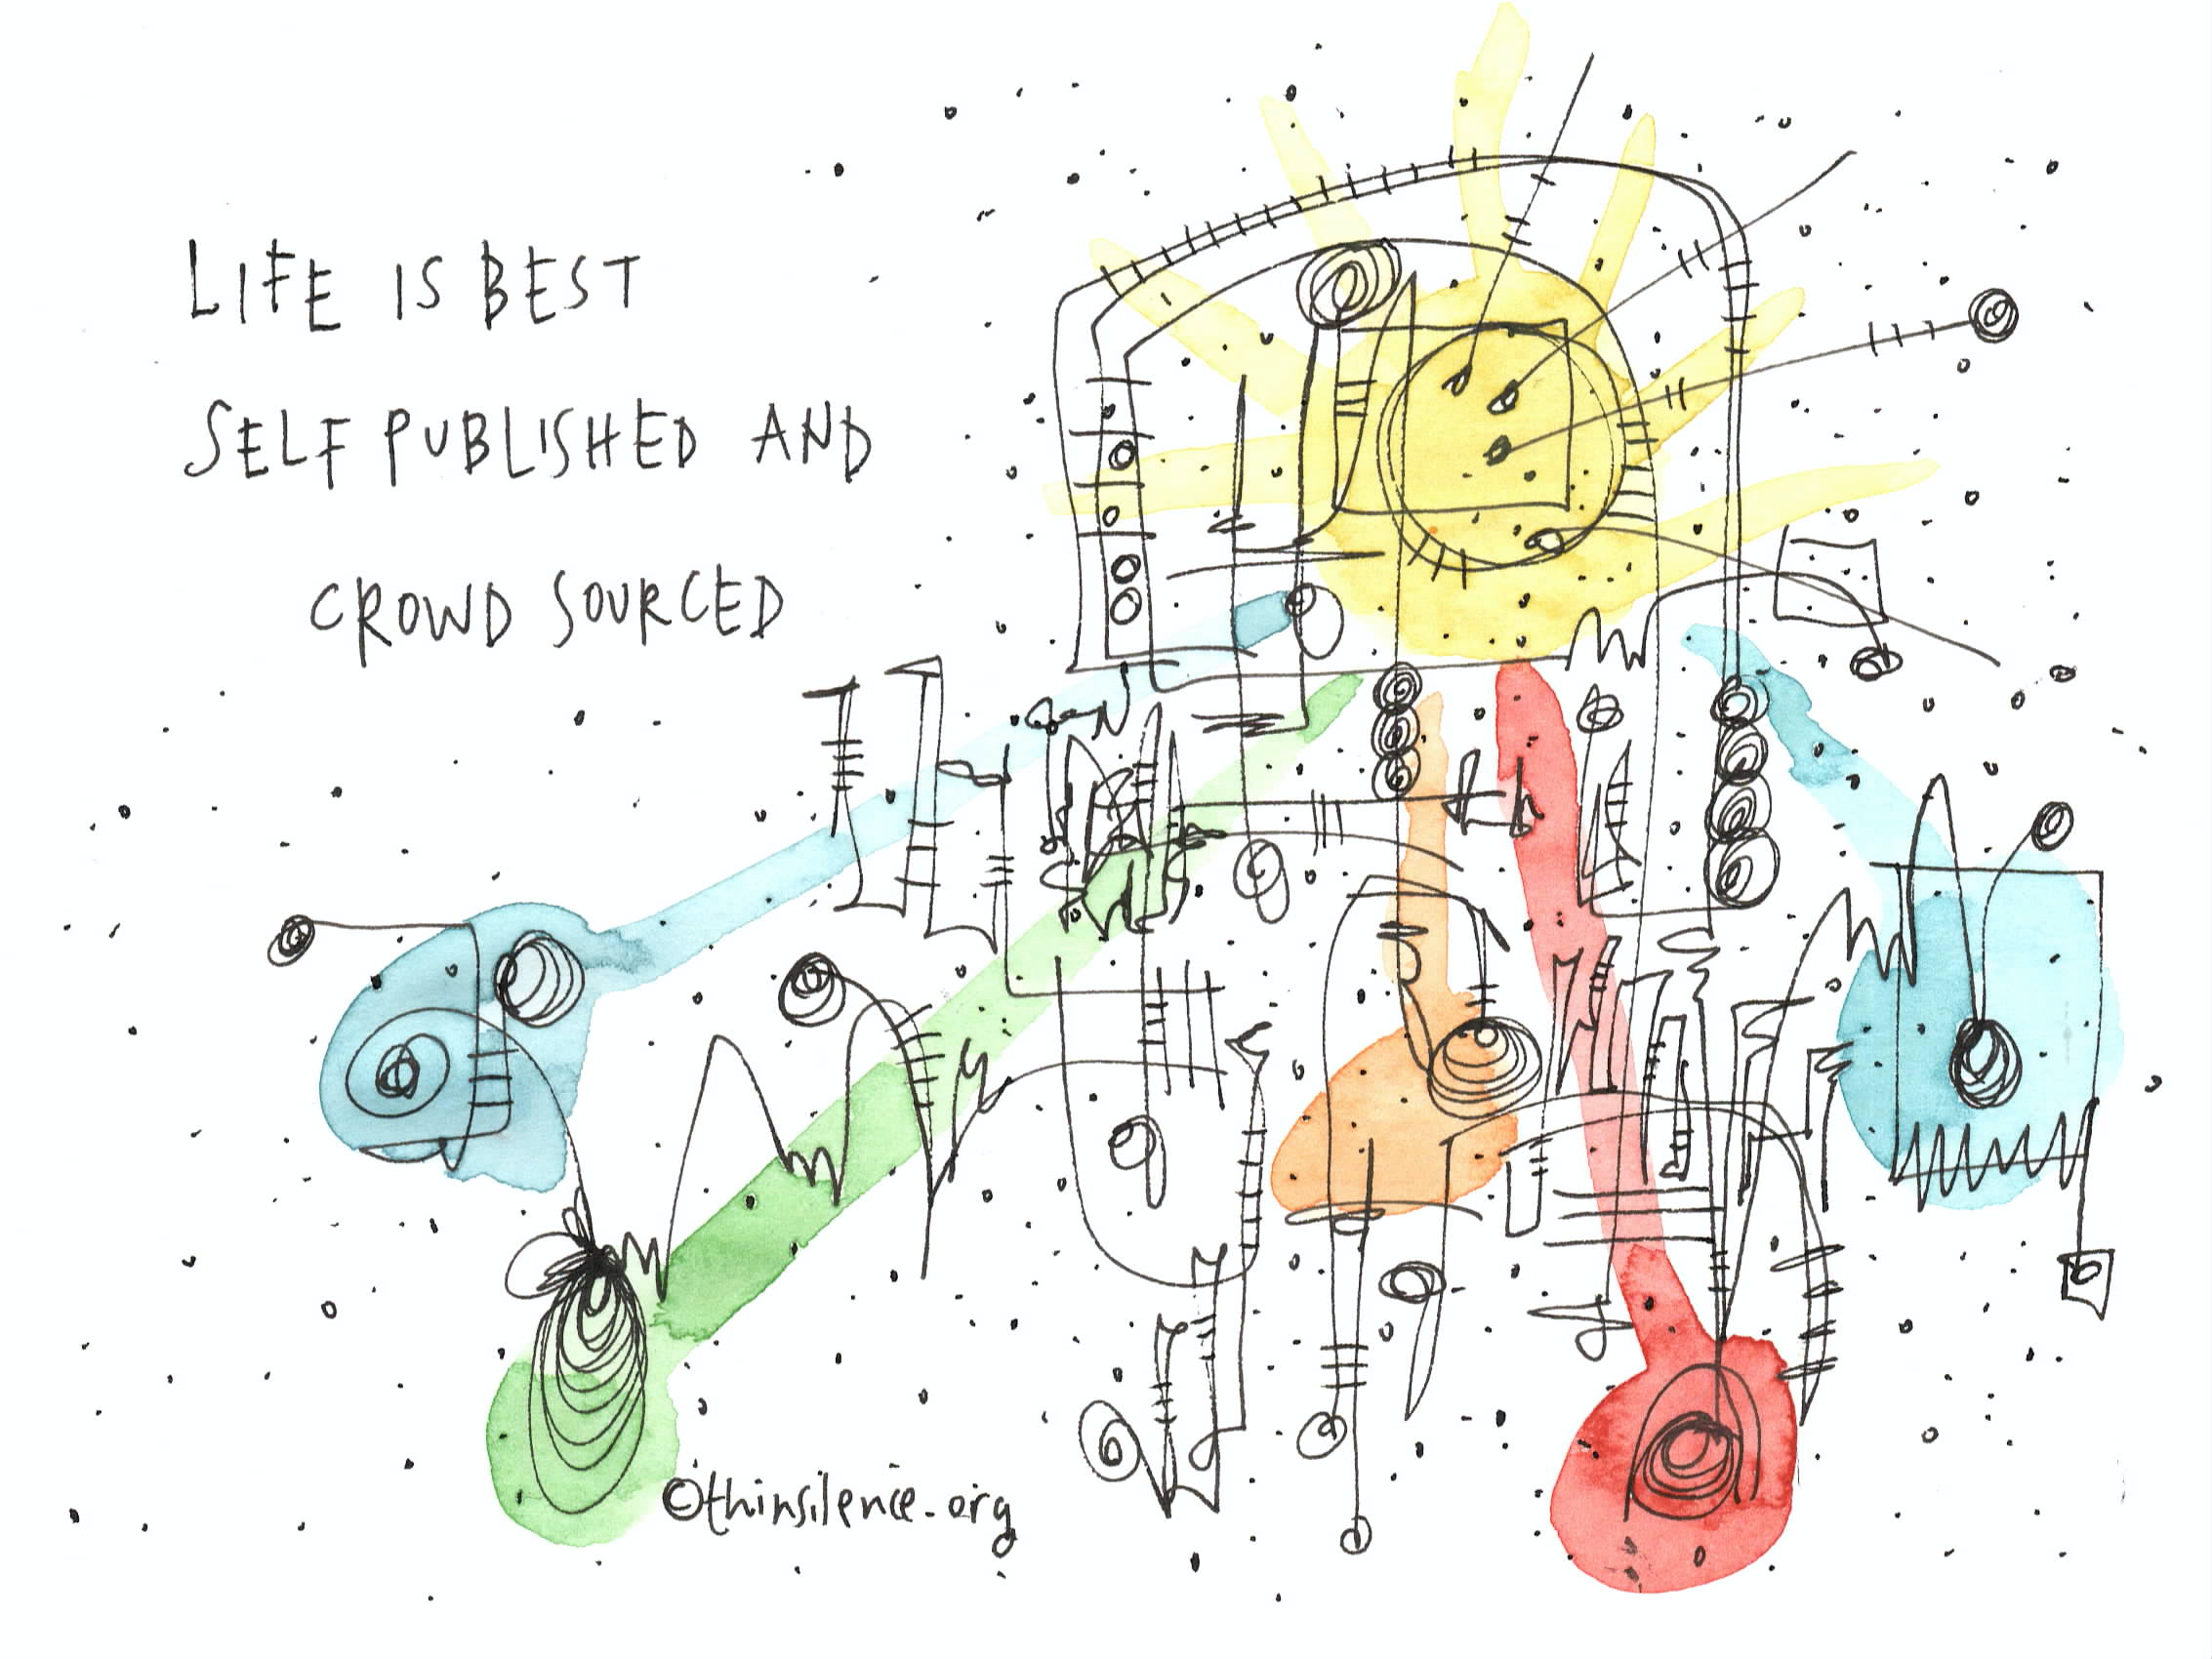 LIFE IS BEST
SELF PUBLISHED AND
CROWD SOURCED
©thinsilence.org